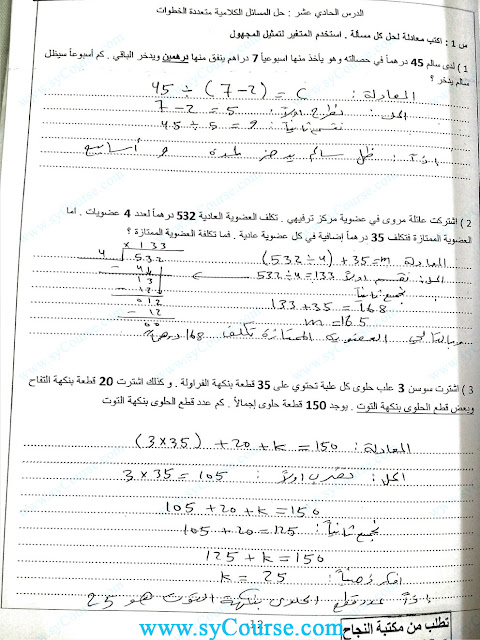 الدرس الحادي عشر : حل المسائل الكلامية متعددة الخطوات
س 1 : اكتب معادلة لحل كل مسألة . استخدم المتغير لتمثيل المجهول
1 ) لدى سالم 45 درهماً في حصالته وهو يأخذ منها اسبوعياً 7 دراهم ينفق منها درهمين ويدخر الباقي . كم أسبوعاً سيظل
سالم يدخر ؟
المعادلة : 45 ÷ (7-2) = c
الحل : نطرح اولاً : 7 - 2 = 5
نقسم ثانياً : 45 ÷ 5 = 9
اذاً : ظل سالم يدخر لمدة 9 أسابيع
2 ) اشتركت عائلة مروى في عضوية مركز ترفيهي . تكلف العضوية العادية 532 درهماً لعدد 4 عضويات . اما
العضوية الممتازة فتكلف 35 درهماً إضافية في كل عضوية عادية . فما تكلفة العضوية الممتازة ؟
× 133
المعادلة (532 ÷ 4) + 35 = m
4 532
الحل : نقسم اولاً 532 ÷ 4 = 133
- 4
13
نجمع ثانياً
- 12
133 + 35 = 168
012
- 12
m = 165
00
وبالتالي العضوية الممتازة تكلف 168 درهم
3 ) اشترت سوسن 3 علب حلوى كل علبة تحتوي على 35 قطعة بنكهة الفراولة . و كذلك اشترت 20 قطعة بنكهة التفاح
وبعض قطع الحلوى بنكهة التوت . يوجد 150 قطعة حلوى إجمالاً . كم عدد قطع الحلوى بنكهة التوت
المعادلة : (3×35) + 20 + k = 150
الحل : نضرب اولاً : 3 × 35 = 105
105 + 20 + k = 150
نجمع ثانياً : 105 + 20 = 125
125 + k = 150
k = 25
اذاً عدد قطع الحلوى بنكهة التوت هو 25
12
www.syCourse.com
تطلب من مكتبة النجاح